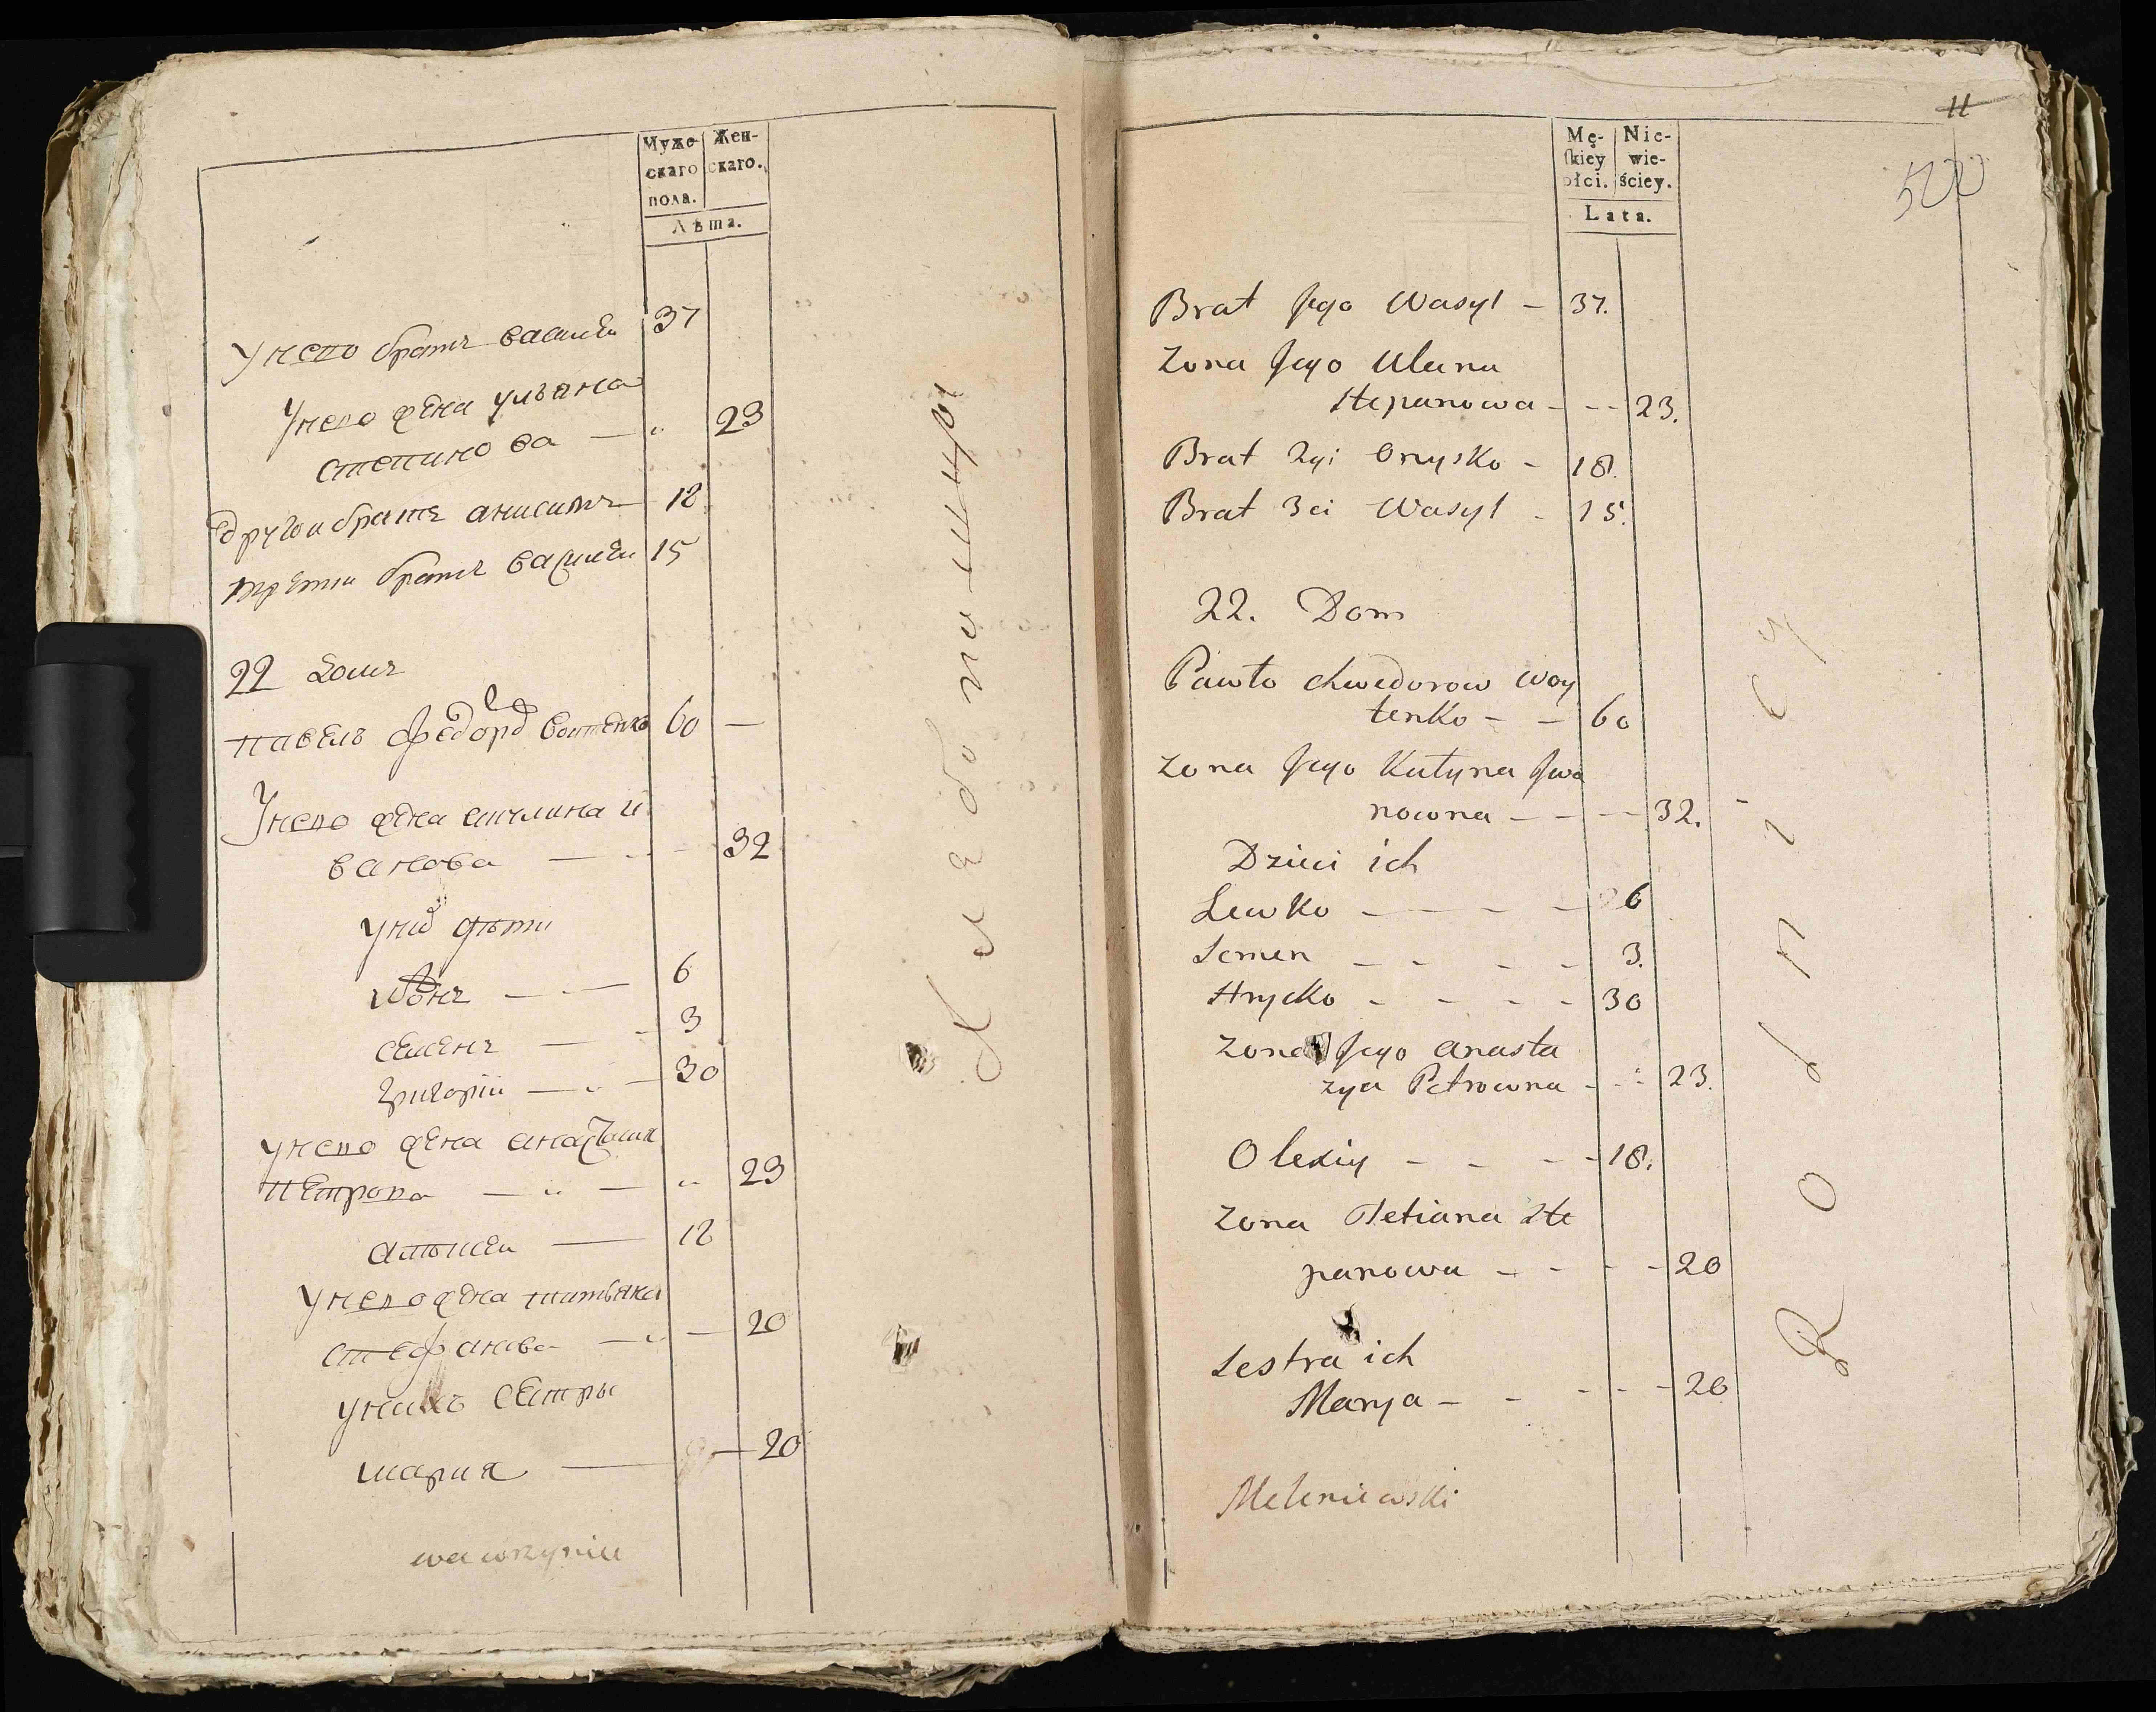 Муже-
скаго
пола.
Жен-
скаго.
Лѣта.
Унего братъ василеи 37
Унего жена ульяна
степанова — 23
Другои братъ анисимъ 18
третии братъ василеи 15
22 домъ
павелъ федоро воитенко 60 —
Унего жена
ванова — 32
Унихъ дѣти
6
семенъ — 3
григории — 30
Унего жена анастасия
петрова — 23
алексеи — 18
Унего жена татьяна
стефанова — 20
Унихъ сестры
мария — 20
Хлебопашцы
wawrzyniec
11
500
Mę-
skiey
płci.
Nie-
wie-
ściey.
Lata.
Brat Jego Wasyl - 37.
Zona Jego Ulana
Stepanowa - - - 23.
Brat 2gi Onysko - 18.
Brat 3ci Wasyl - 15.
22. Dom
Pawło Chwedorow Woy
tenko - - 60
Zona Jego Katyna Jwa
nowna - - - 32.
Dzieci ich
Lewko - - - - 6
Semen - - - - 3.
Hrycko - - - - 30
Zona Jego Anasta
zya Petrowna - - 23.
Olexiy - - - - 18.
Zona Tetiana Ste
panowa - - - - 20
Sestra ich
Marya - - - - - 20
Meleniewski
Rolnicy